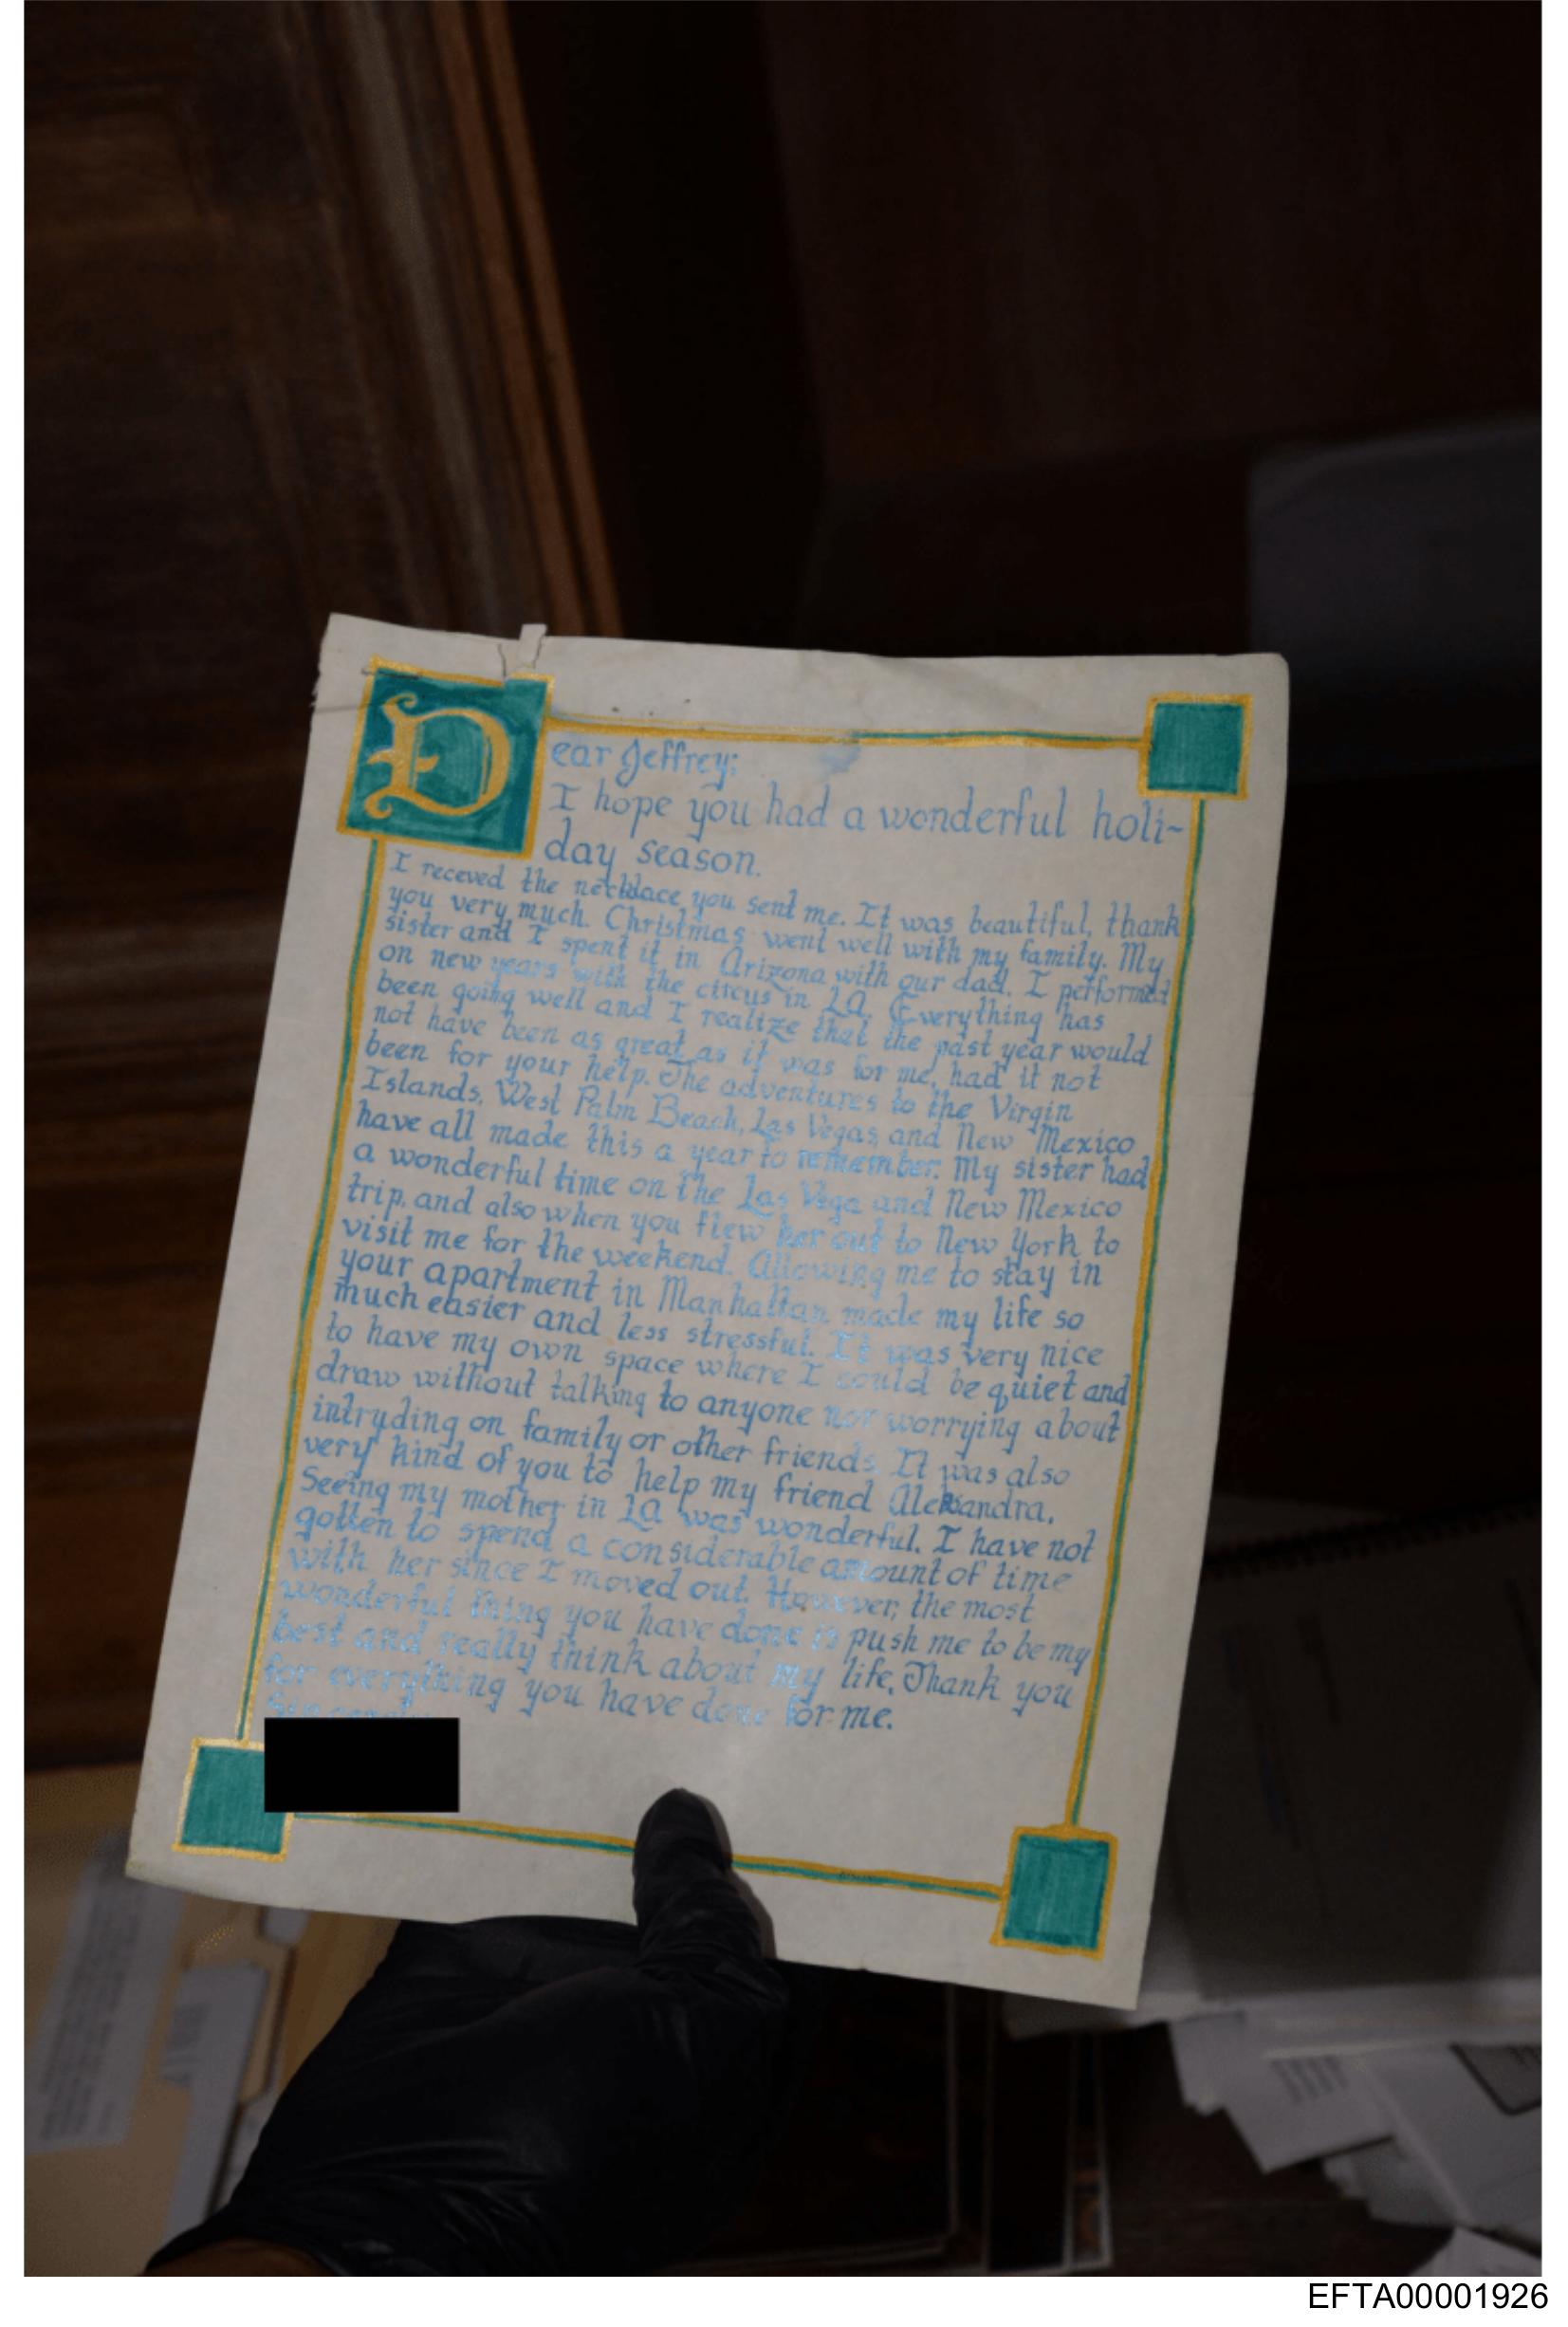 Dear Jeffrey:
I hope you had a wonderful holi-
day season.
I receved the necklace you sent me. It was beautiful, thank
you very much. Christmas went well with my family. My
sister and I spent it in Arizona with our dad. I performed
on new years with the circus in LA. Everything has
been going well and I realize that the past year would
not have been as great as it was for me, had it not
been for your help. The adventures to the Virgin
Islands, West Palm Beach, Las Vegas, and New Mexico
have all made this a year to remember. My sister had
a wonderful time on the Las Vega and New Mexico
trip, and also when you flew her out to New York to
visit me for the weekend. Allowing me to stay in
your apartment in Manhattan made my life so
much easier and less stressful. It was very nice
to have my own space where I could be quiet and
draw without talking to anyone nor worrying about
intruding on family or other friends. It was also
very kind of you to help my friend Alexandra.
Seeing my mother in LA was wonderful. I have not
gotten to spend a considerable amount of time
with her since I moved out. However, the most
wonderful thing you have done is push me to be my
best and really think about my life. Thank you
for everything you have done for me.
EFTA00001926